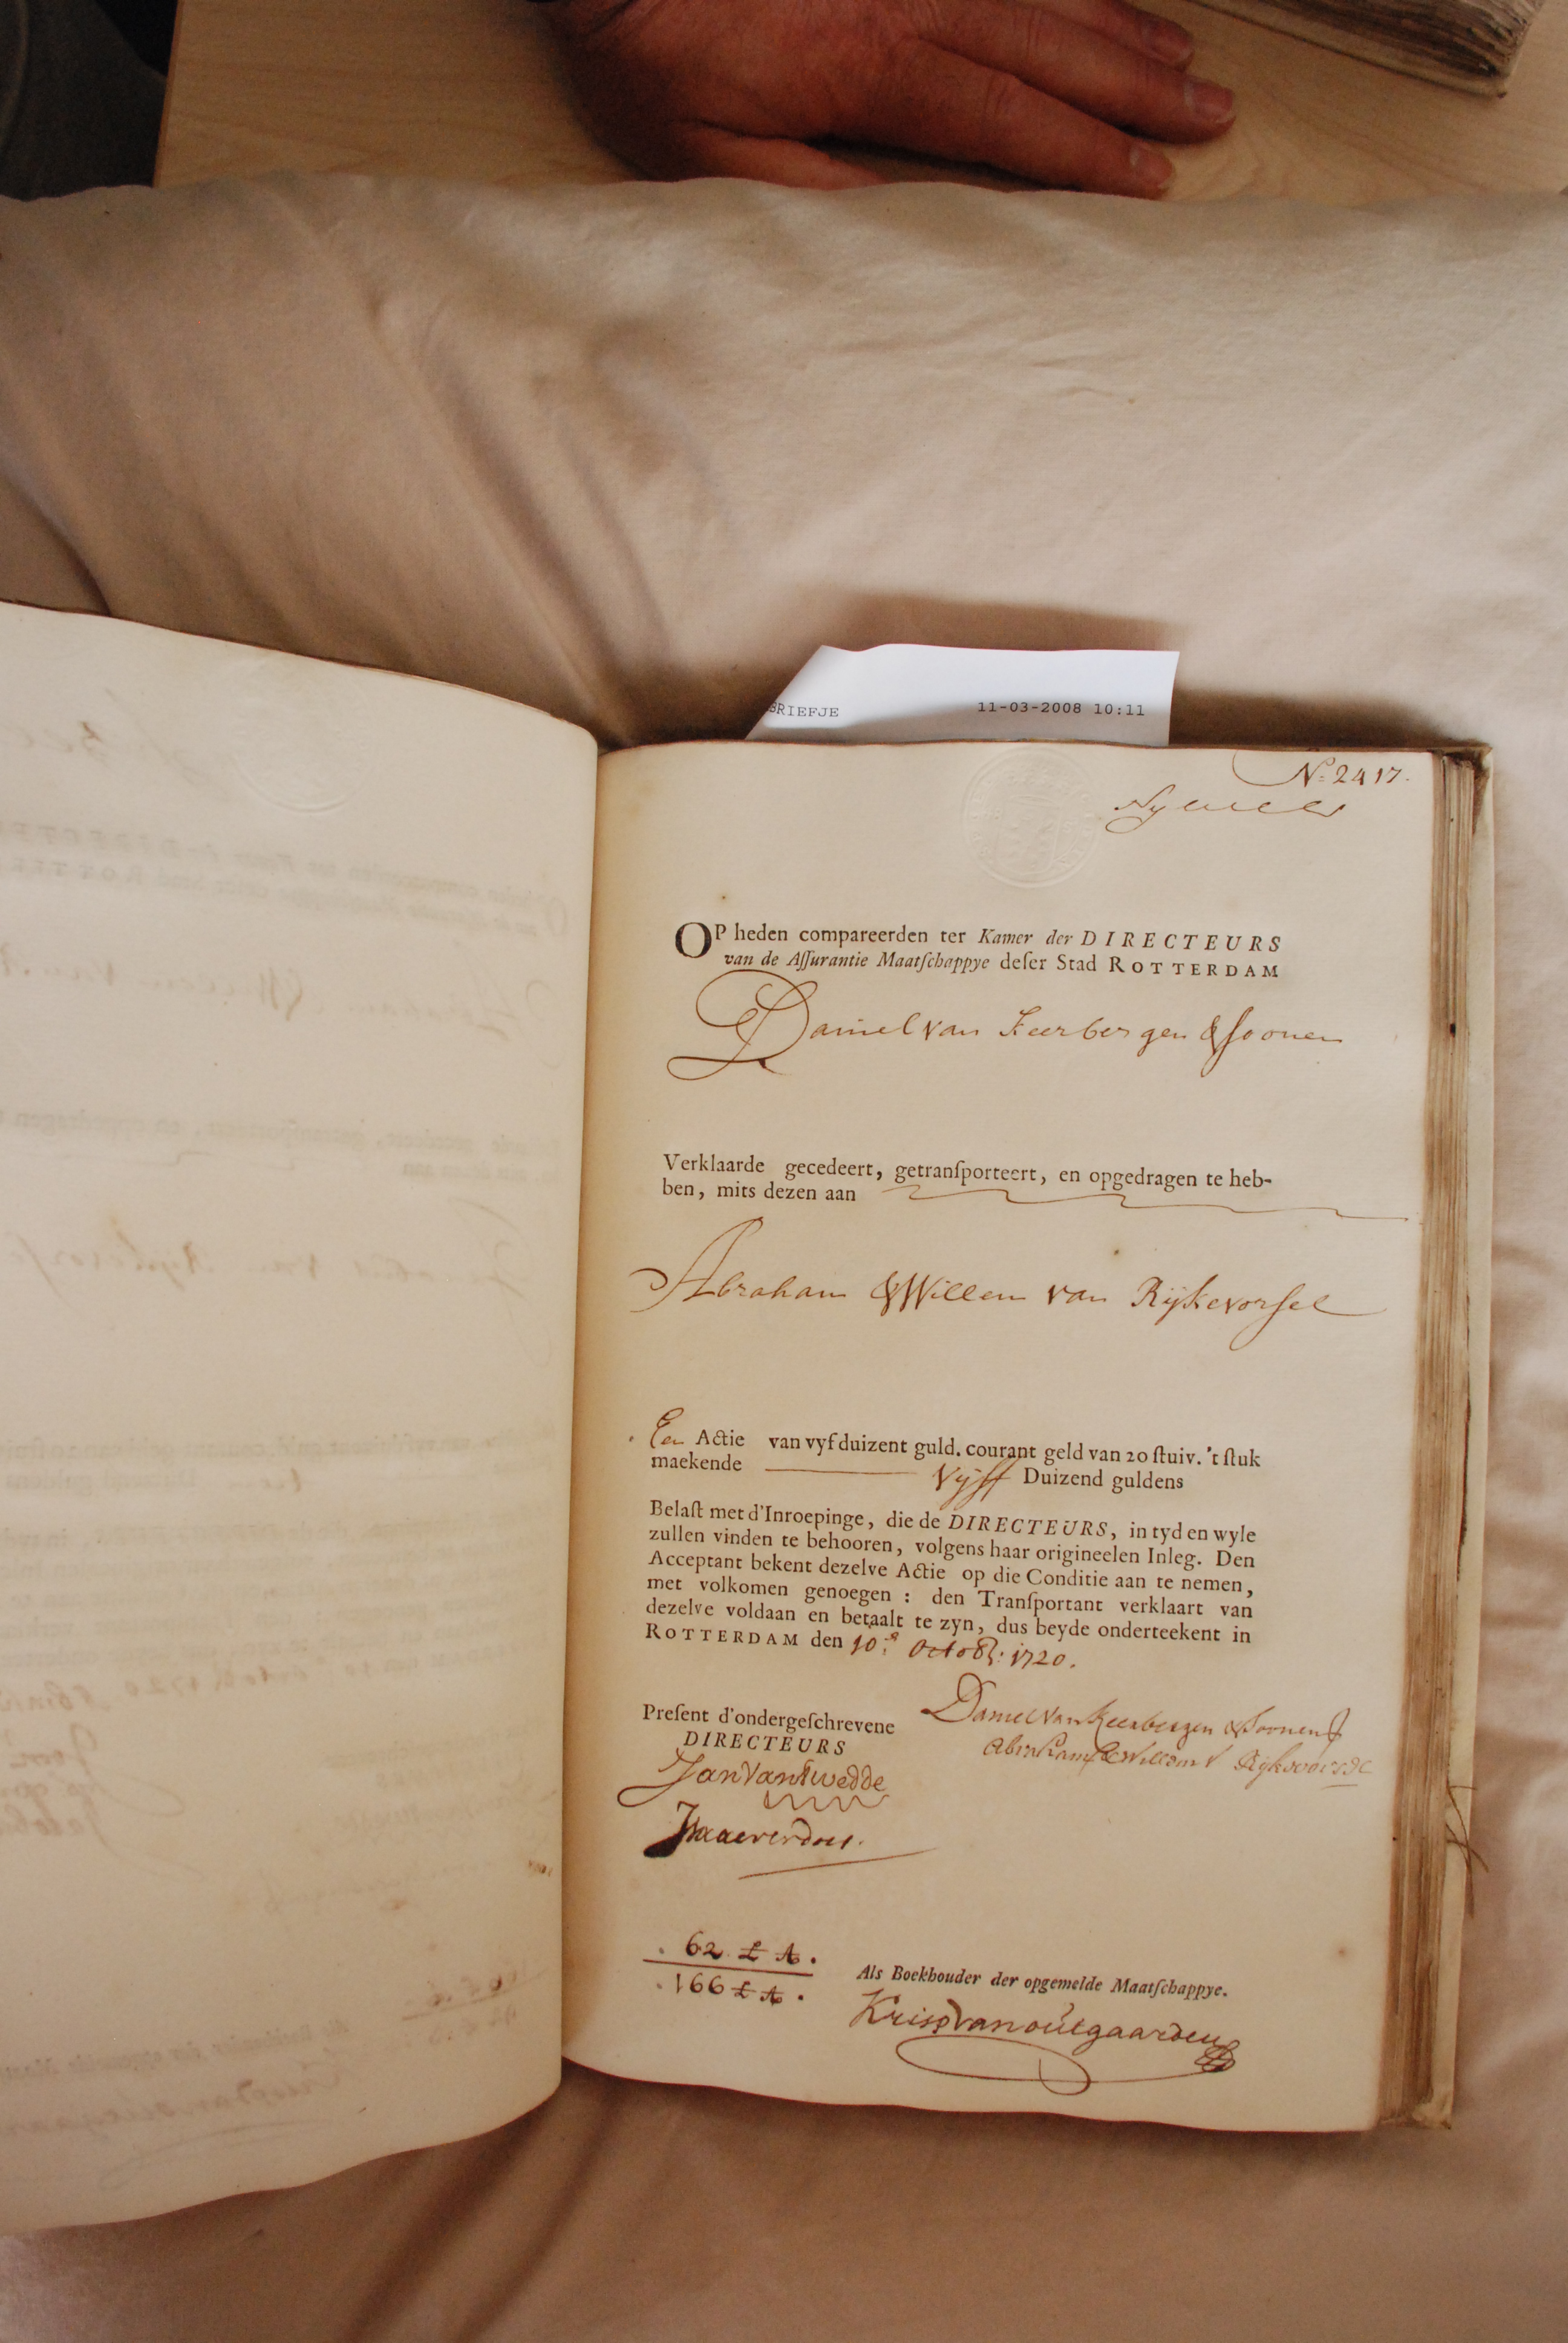 BRIEFJE 11-03-2008 10:11
No 2417.
OP heden compareerden ter Kamer der DIRECTEURS
van de Aſſurantie Maatſchappye deſer Stad ROTTERDAM
Daniel van Keerbergen & soonen
Verklaarde gecedeert, getranſporteert, en opgedragen te heb-
ben, mits dezen aan
Abraham & Willem van Rijkevorsel
Een Actie van vyf duizent guld. courant geld van 20 ſtuiv. 't ſtuk
maekende Vijff Duizend guldens
Belaſt met d'Inroepinge, die de DIRECTEURS, in tyd en wyle
zullen vinden te behooren, volgens haar origineelen Inleg. Den
Acceptant bekent dezelve Actie op die Conditie aan te nemen,
met volkomen genoegen : den Tranſportant verklaart van
dezelve voldaan en betaalt te zyn, dus beyde onderteekent in
ROTTERDAM den 10e Octob: 1720.
Daniel van Keerbergen & Soonen
Preſent d'ondergeſchrevene
Abraham & Willem V Rijkevorsel
DIRECTEURS
Jan Van Twedde
62 £ A.
166 £ A.
Als Boekhouder der opgemelde Maatſchappye.
Krisp Van outgaarden